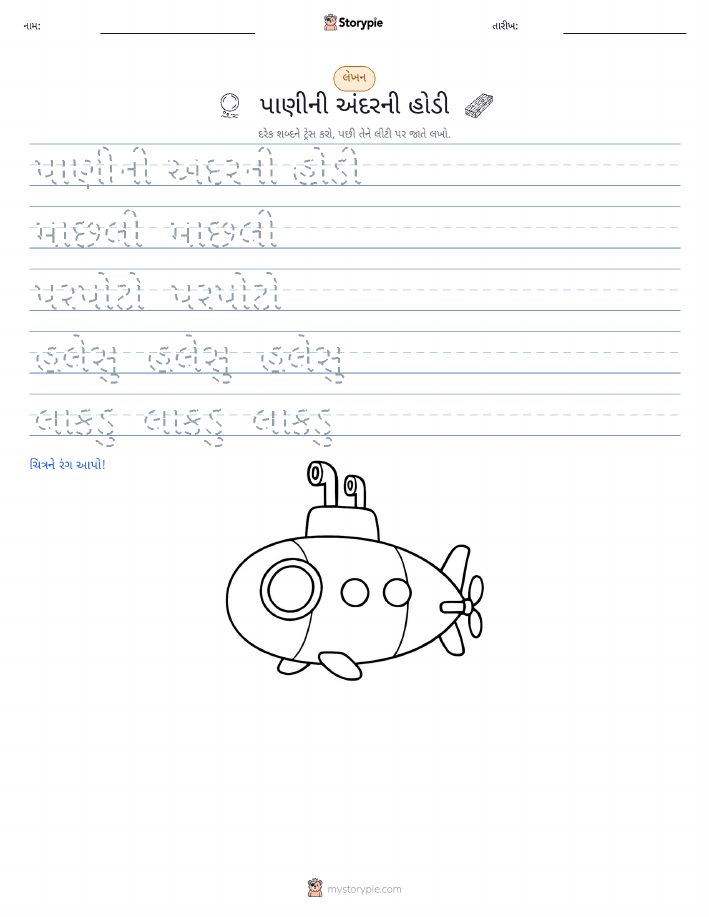 નામ:
Storypie
તારીખ:
લેખન
પાણીની અંદરની હોડી
દરેક શબ્દને ટ્રેસ કરો, પછી તેને લીટી પર જાતે લખો.
પાણીની અદરની હોડી
માછલી માછલી
પરપોટો પરપોટો
હલેસુ હલેસુ હલેસુ
લાકડુ લાકડુ લાકડુ
ચિત્રને રંગ આપો!
mystorypie.com